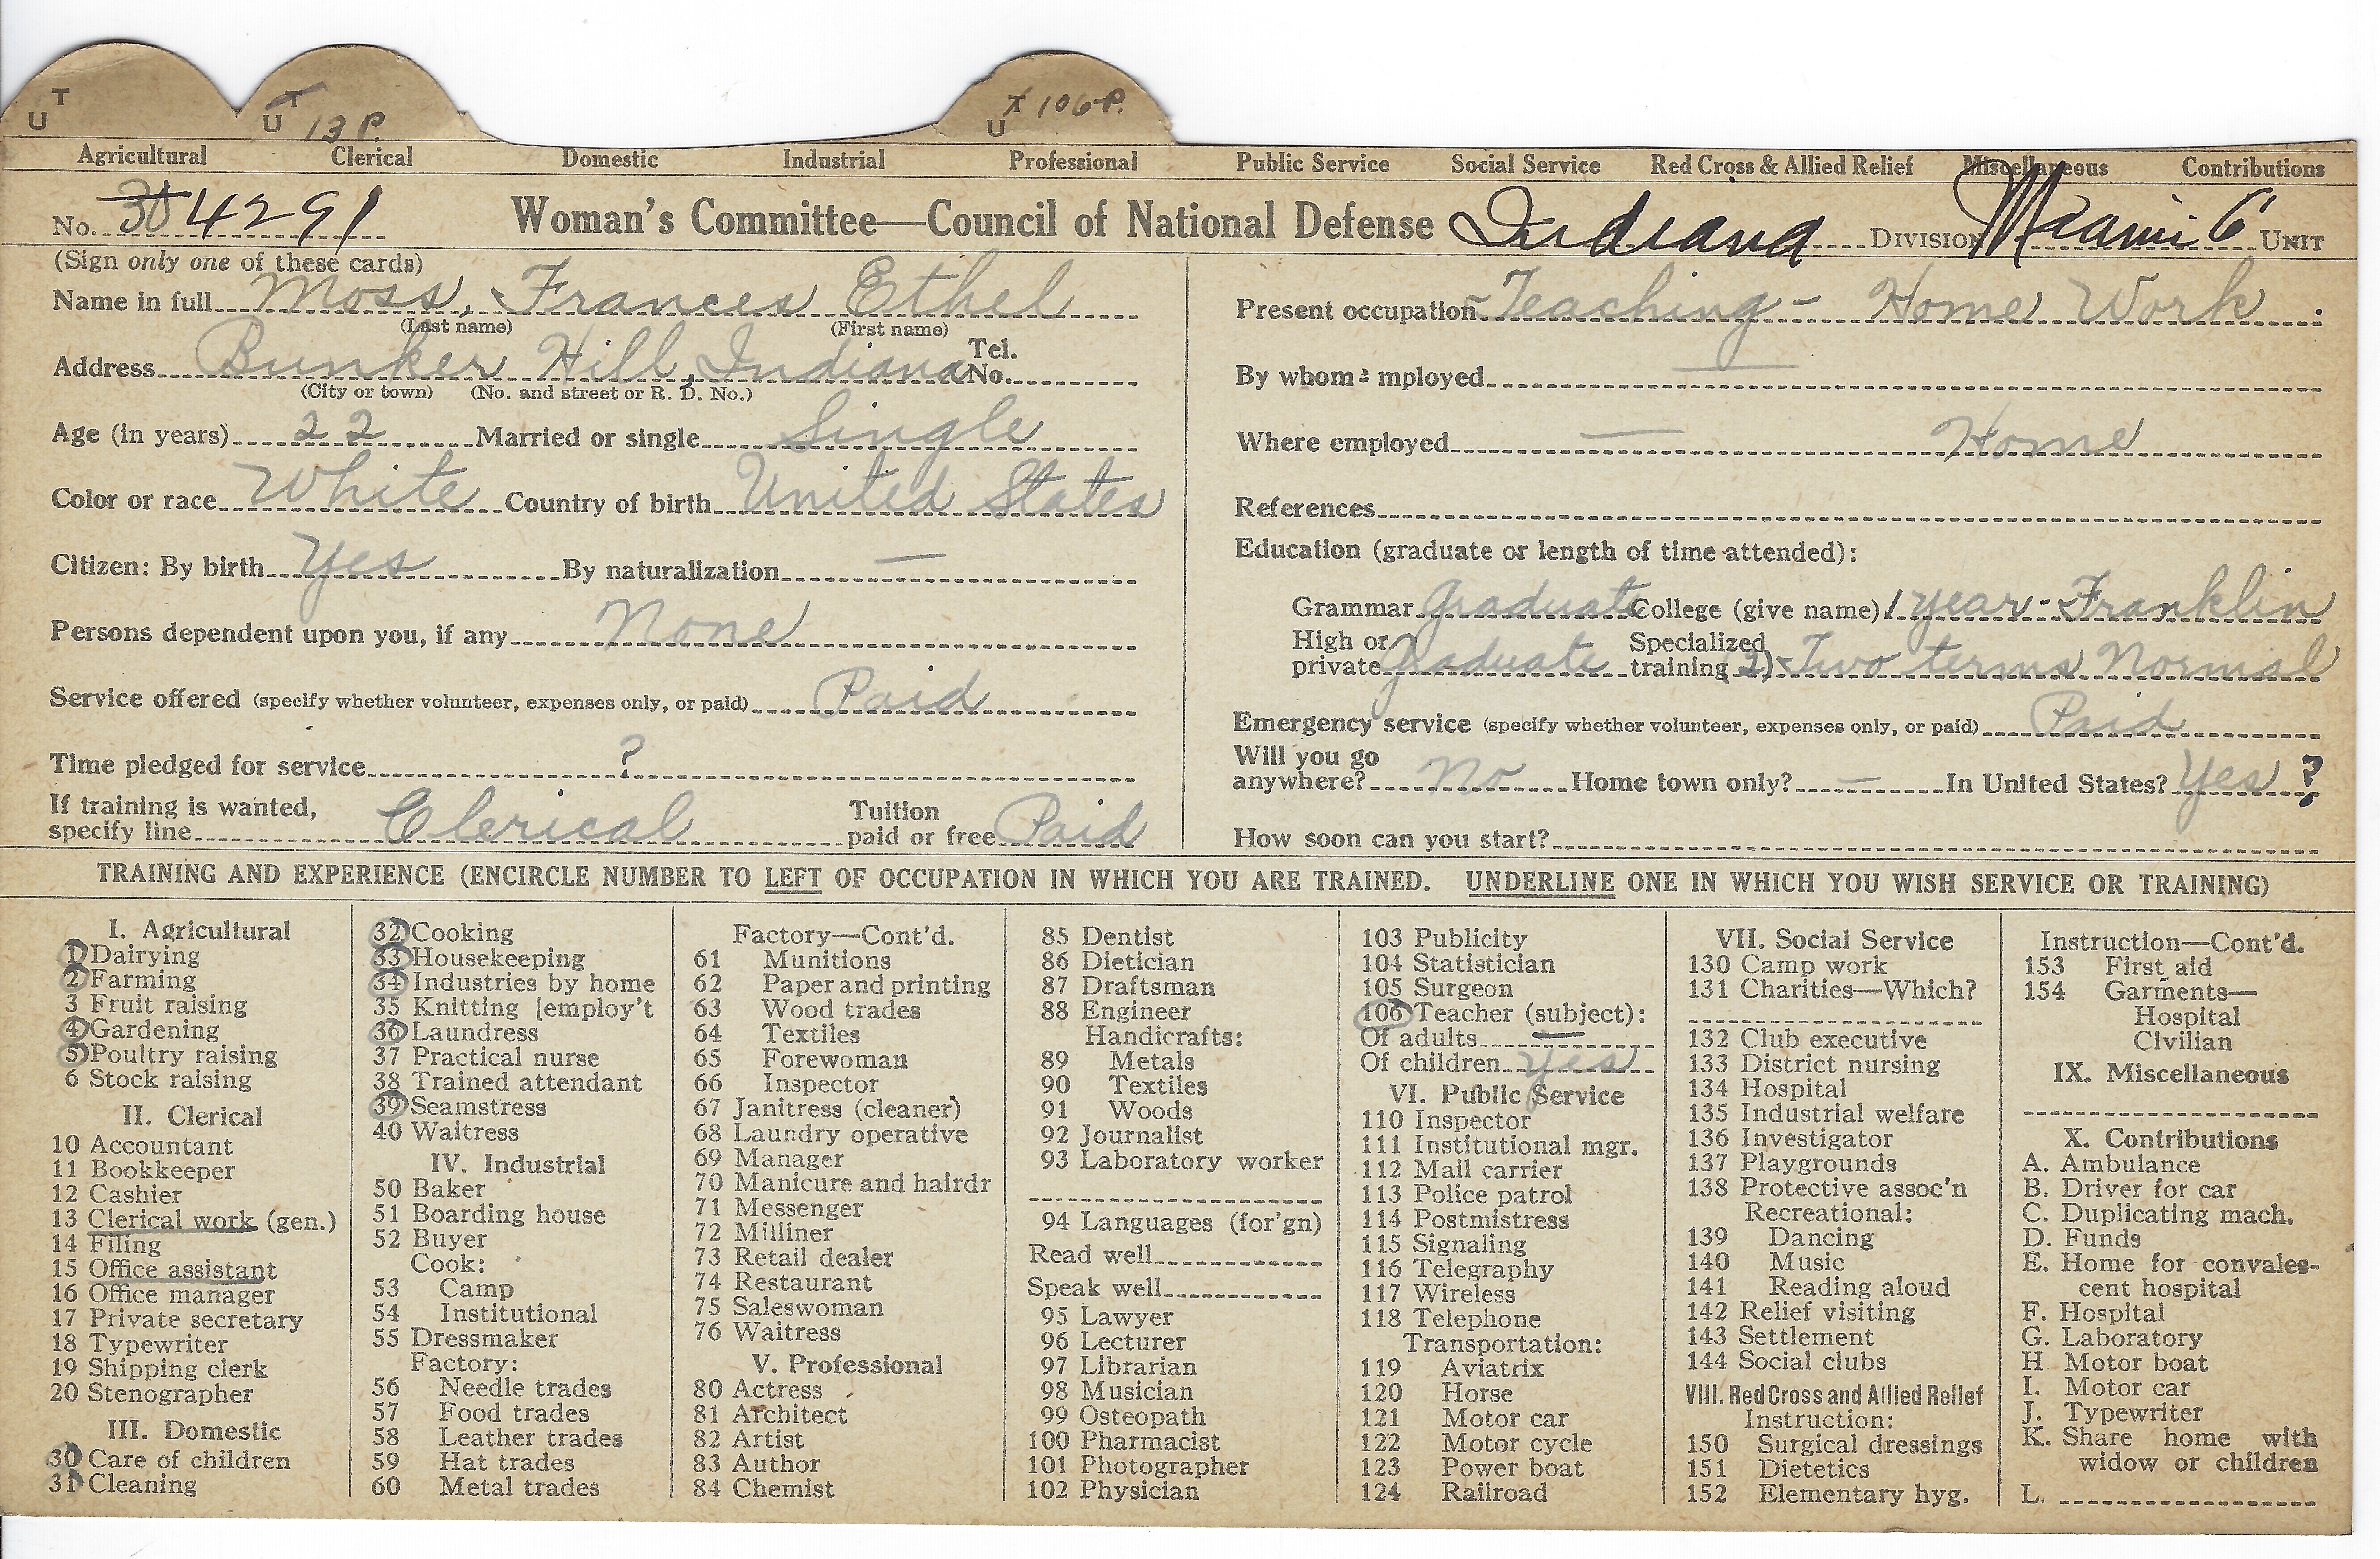 T
U
T
U 13 P.
T 106 P.
U
Agricultural Clerical Domestic Industrial Professional Public Service Social Service Red Cross & Allied Relief Miscellaneous Contributions
No. 304291 Woman's Committee—Council of National Defense Indiana DIVISION Miami 6 UNIT
(Sign only one of these cards)
Name in full Moss, Frances Ethel
(Last name) (First name)
Address Bunker Hill, Indiana Tel. No.
(City or town) (No. and street or R. D. No.)
Age (in years) 22 Married or single Single
Color or race White Country of birth United States
Citizen: By birth Yes By naturalization —
Persons dependent upon you, if any None
Service offered (specify whether volunteer, expenses only, or paid) Paid
Time pledged for service ?
If training is wanted,
specify line Clerical Tuition paid or free Paid
Present occupation - Teaching - Home Work
By whom employed —
Where employed — Home
References
Education (graduate or length of time attended):
Grammar Graduate College (give name) 1 year - Franklin
High or private Graduate Specialized training (2) Two terms Normal
Emergency service (specify whether volunteer, expenses only, or paid) Paid
Will you go
anywhere? No Home town only? — In United States? Yes ?
How soon can you start?
TRAINING AND EXPERIENCE (ENCIRCLE NUMBER TO LEFT OF OCCUPATION IN WHICH YOU ARE TRAINED. UNDERLINE ONE IN WHICH YOU WISH SERVICE OR TRAINING)
I. Agricultural
1 Dairying
2 Farming
3 Fruit raising
4 Gardening
5 Poultry raising
6 Stock raising
II. Clerical
10 Accountant
11 Bookkeeper
12 Cashier
13 Clerical work (gen.)
14 Filing
15 Office assistant
16 Office manager
17 Private secretary
18 Typewriter
19 Shipping clerk
20 Stenographer
III. Domestic
30 Care of children
31 Cleaning
32 Cooking
33 Housekeeping
34 Industries by home
35 Knitting [employ't
36 Laundress
37 Practical nurse
38 Trained attendant
39 Seamstress
40 Waitress
IV. Industrial
50 Baker
51 Boarding house
52 Buyer
Cook:
53 Camp
54 Institutional
55 Dressmaker
Factory:
56 Needle trades
57 Food trades
58 Leather trades
59 Hat trades
60 Metal trades
Factory—Cont'd.
61 Munitions
62 Paper and printing
63 Wood trades
64 Textiles
65 Forewoman
66 Inspector
67 Janitress (cleaner)
68 Laundry operative
69 Manager
70 Manicure and hairdr
71 Messenger
72 Milliner
73 Retail dealer
74 Restaurant
75 Saleswoman
76 Waitress
V. Professional
80 Actress
81 Architect
82 Artist
83 Author
84 Chemist
85 Dentist
86 Dietician
87 Draftsman
88 Engineer
Handicrafts:
89 Metals
90 Textiles
91 Woods
92 Journalist
93 Laboratory worker
94 Languages (for'gn)
Read well
Speak well
95 Lawyer
96 Lecturer
97 Librarian
98 Musician
99 Osteopath
100 Pharmacist
101 Photographer
102 Physician
103 Publicity
104 Statistician
105 Surgeon
106 Teacher (subject):
Of adults —
Of children Yes
VI. Public Service
110 Inspector
111 Institutional mgr.
112 Mail carrier
113 Police patrol
114 Postmistress
115 Signaling
116 Telegraphy
117 Wireless
118 Telephone
Transportation:
119 Aviatrix
120 Horse
121 Motor car
122 Motor cycle
123 Power boat
124 Railroad
VII. Social Service
130 Camp work
131 Charities—Which?
132 Club executive
133 District nursing
134 Hospital
135 Industrial welfare
136 Investigator
137 Playgrounds
138 Protective assoc'n
Recreational:
139 Dancing
140 Music
141 Reading aloud
142 Relief visiting
143 Settlement
144 Social clubs
VIII. Red Cross and Allied Relief
Instruction:
150 Surgical dressings
151 Dietetics
152 Elementary hyg.
Instruction—Cont'd.
153 First aid
154 Garments—
Hospital
Civilian
IX. Miscellaneous
X. Contributions
A. Ambulance
B. Driver for car
C. Duplicating mach.
D. Funds
E. Home for convales-
cent hospital
F. Hospital
G. Laboratory
H Motor boat
I. Motor car
J. Typewriter
K. Share home with
widow or children
L.